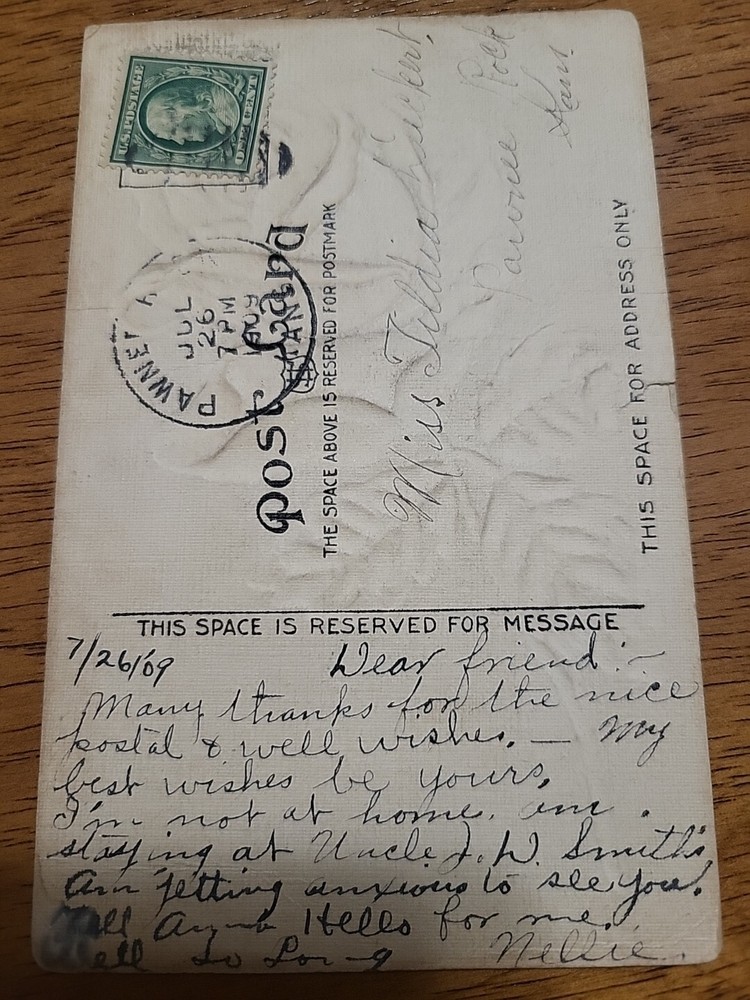 U.S. POSTAGE
ONE CENT
PAWNEE
JUL
26
7 PM
1909
KANS
Post Card
THE SPACE ABOVE IS RESERVED FOR POSTMARK
Miss Tildia
Pawnee Rock
Kan.
THIS SPACE FOR ADDRESS ONLY
THIS SPACE IS RESERVED FOR MESSAGE
7/26/09 Dear friend:-
Many thanks for the nice
postal & well wishes. — My
best wishes be yours.
I'm not at home. am
staying at Uncle J. W. Smith's
Am getting anxious to see you.
Tell Anna Hello for me.
Well So Long Nellie.